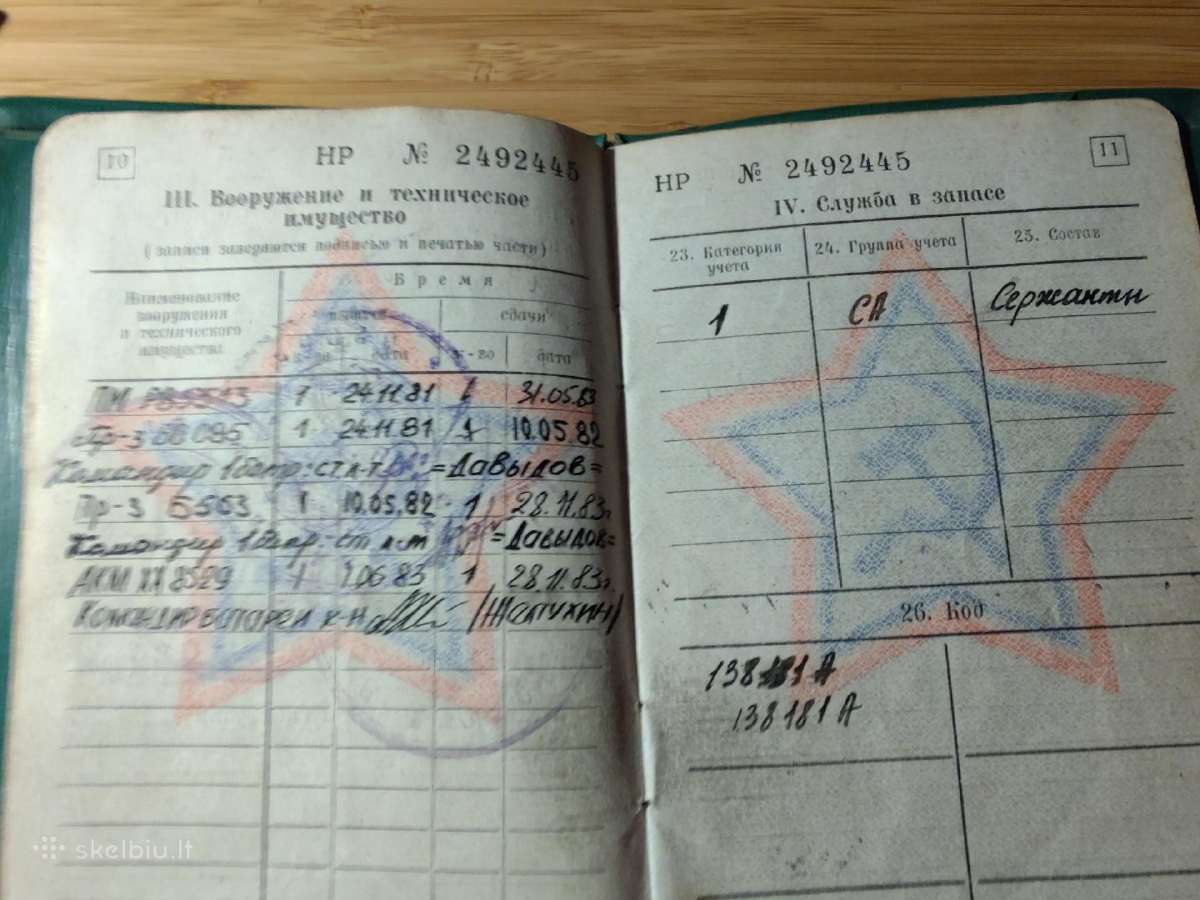 10
НР № 2492445
III. Вооружение и техническое
имущество
(записи заверяются подписью и печатью части)
Наименование
вооружения
и технического
имущества
Время
выдачи
сдачи
к-во
дата
к-во
дата
ПМ 1 24.11.81 1 31.05.83
Пр-3 1 24.11.81 1 10.05.82
Командир 1 батр. ст. л-т =Давыдов=
Пр-3 1 10.05.82 1 28.11.83г.
Командир 1 батр. ст л-т =Давыдов=
АКМ 1 1.06.83 1 28.11.83г.
Командир батареи к-н
11
НР № 2492445
IV. Служба в запасе
23. Категория
учета
24. Группа учета
25. Состав
1 СА Сержанты
26. Код
138181 А
138181 А
skelbiu.lt